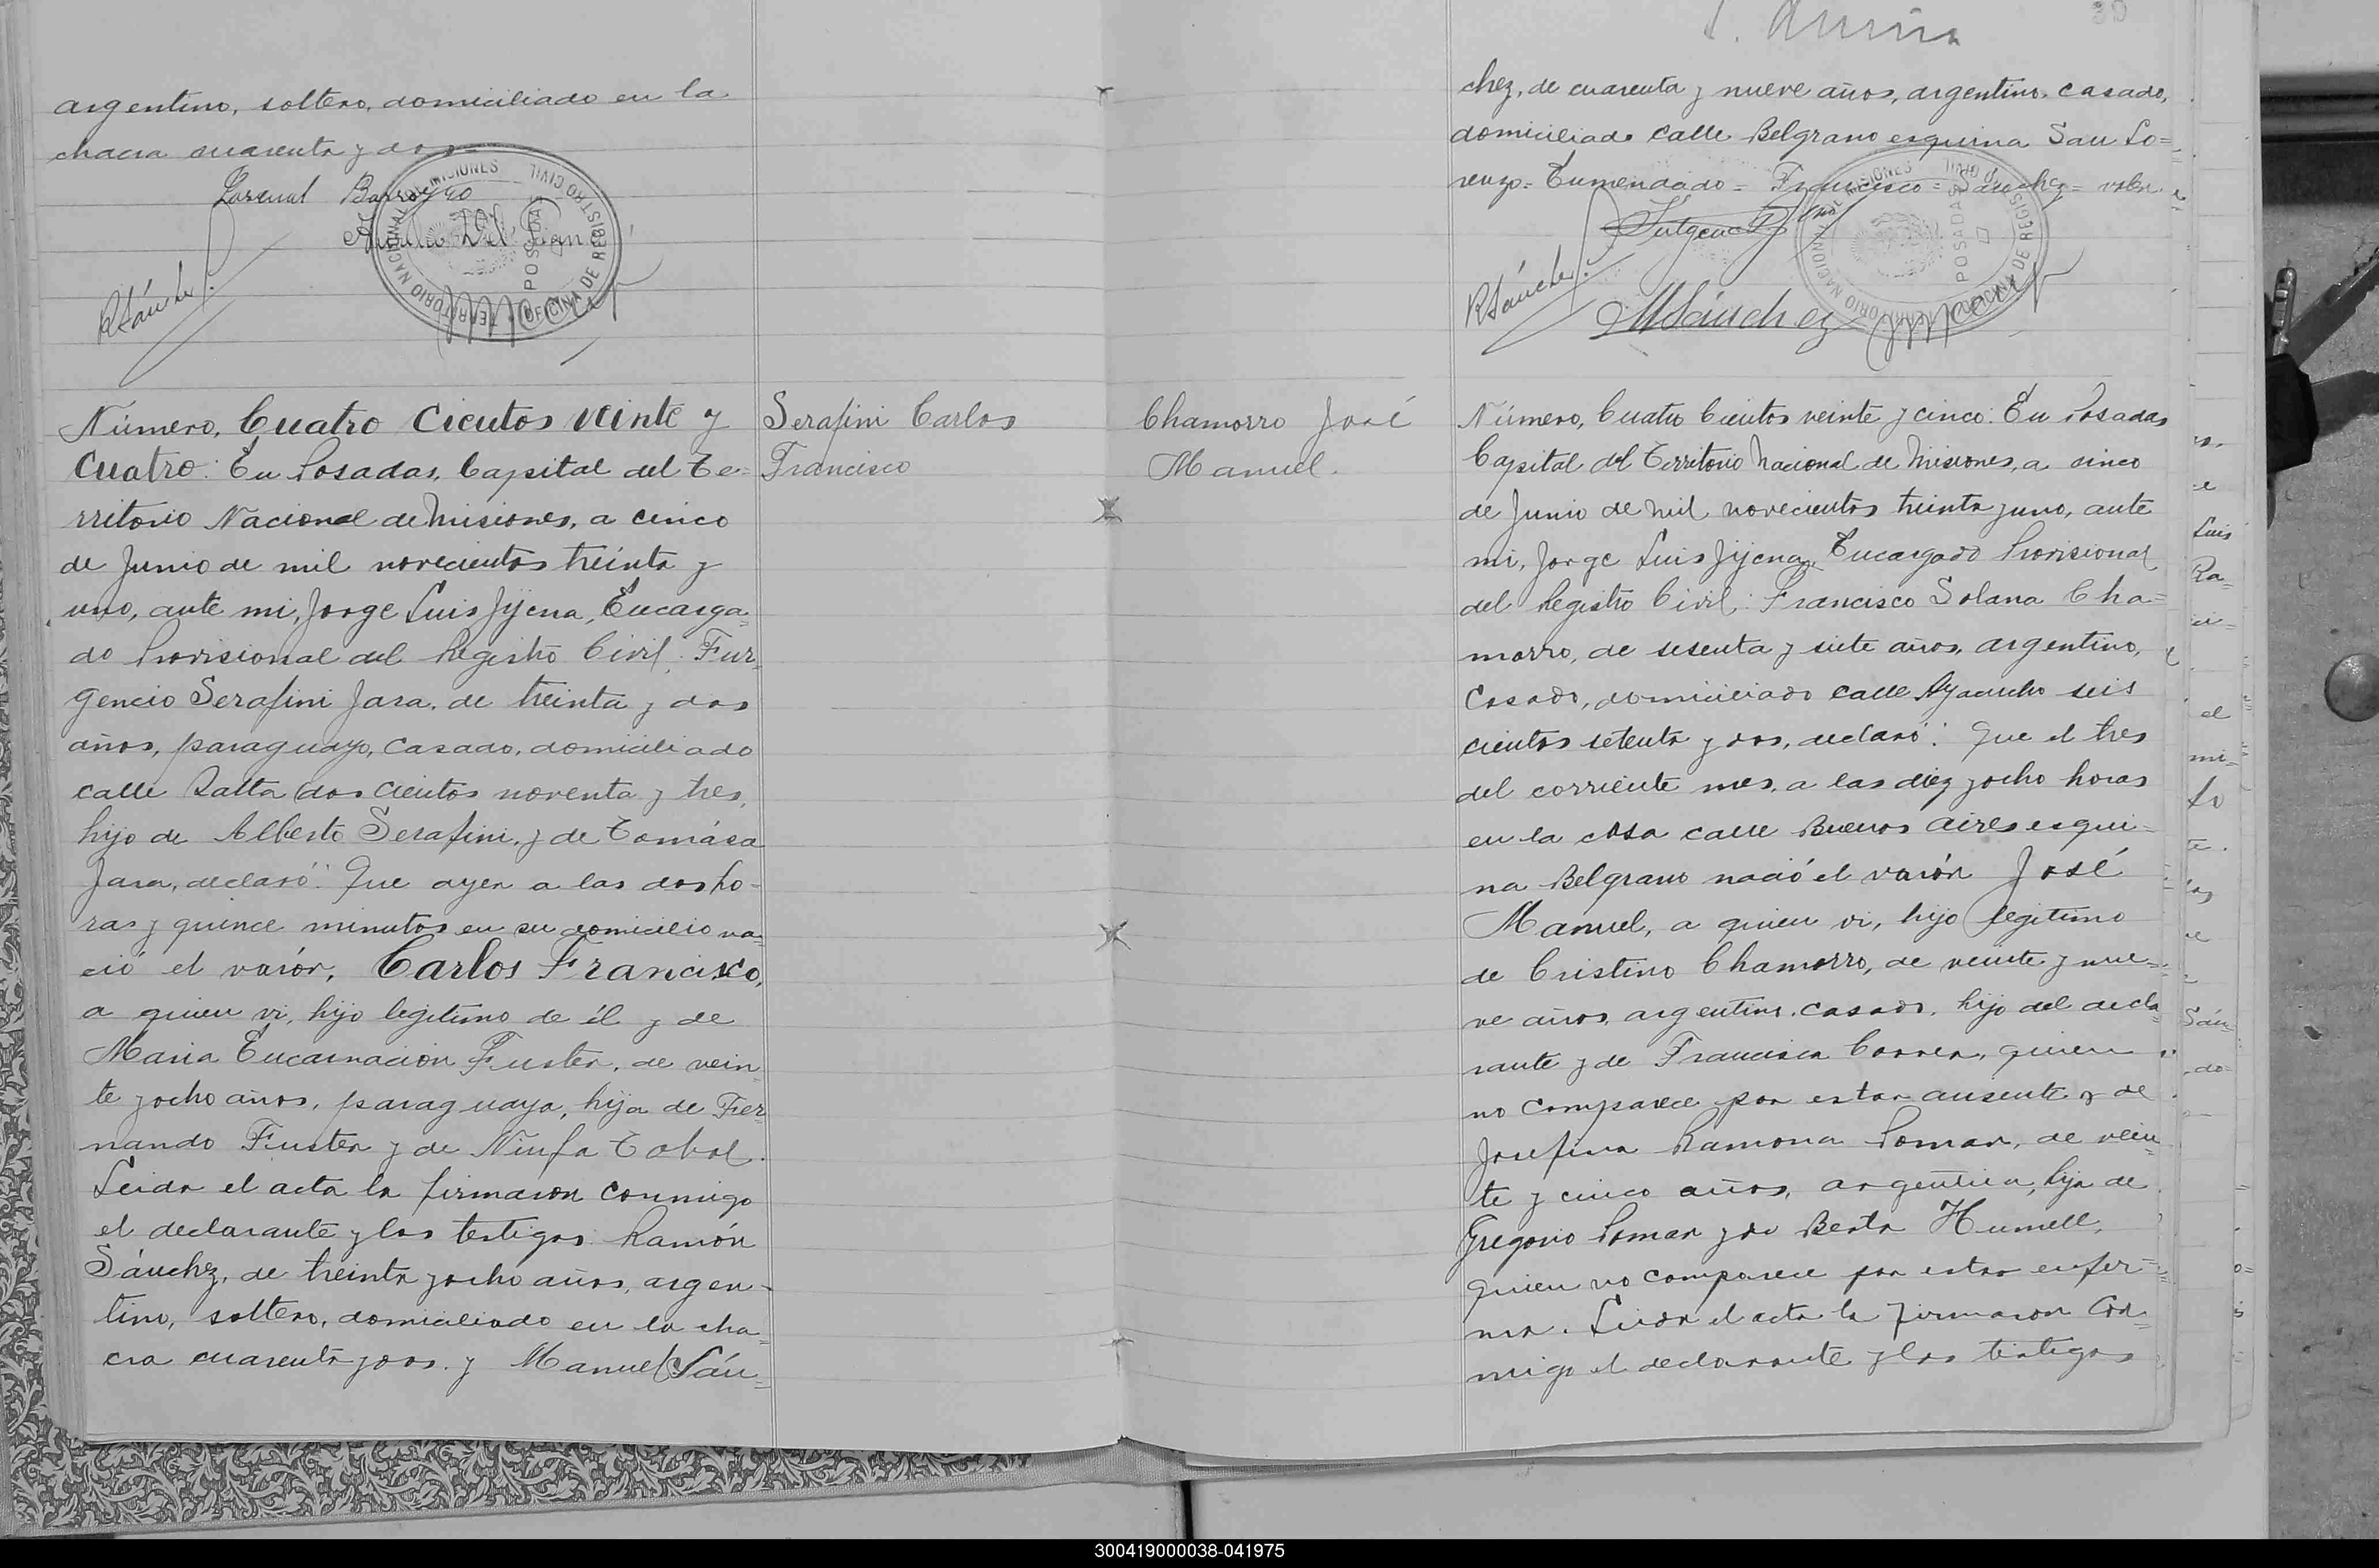 argentino, soltero, domiciliado en la
chacra cuarenta y dos=
Barreyro
RSánchez
TERRITORIO NACIONAL DE MISIONES
OFICINA DE REGISTRO CIVIL
POSADAS
Número, Cuatro Cientos veinte y
cuatro: En Posadas, Capital del Te=
rritorio Nacional de Misiones, a cinco
de Junio de mil novecientos treinta y
uno, ante mi, Jorge Luis Jijena, Encarga=
do Provisional del Registro Civil: Fur=
gencio Serafini Jara, de treinta y dos
años, paraguayo, casado, domiciliado
calle Salta dos cientos noventa y tres,
hijo de Alberto Serafini y de Tomása
Jara, declaró: Que ayer a las dos ho-
ras y quince minutos en su domicilio na=
ció el varón, Carlos Francisco,
a quien vi, hijo legitimo de él y de
Maria Encarnación Fuster, de vein
te y ocho años, paraguaya, hija de Fer=
nando Fuster y de Ninfa Tabol.
Leida el acta la firmaron conmigo
el declarante y los testigos: Ramón
Sánchez, de treinta y ocho años, argen-
tino, soltero, domiciliado en la cha=
cra cuarenta y dos. y Manuel Sán=
Serafini Carlos
Francisco
Chamorro José
Manuel.
30
chez, de cuarenta y nueve años, argentino, casado,
domiciliado calle Belgrano esquina San Lo=
renzo= Enmendado= Francisco= Sánchez= valen
RSánchez
MSánchez
TERRITORIO NACIONAL DE MISIONES
OFICINA DE REGISTRO CIVIL
POSADAS
Número, Cuatro Cientos veinte y cinco: En Posadas
Capital del Territorio Nacional de Misiones, a cinco
de Junio de mil novecientos treinta y uno, ante
mi, Jorge Luis Jijena, Encargado Provisional
del Registro Civil: Francisco Solana Cha=
morro, de sesenta y siete años, argentino,
Casado, domiciliado calle Ayacucho seis
cientos setenta y dos, declaró: Que el tres
del corriente mes, a las diez y ocho horas
en la casa calle Buenos Aires esqui-
na Belgrano nació el varón José
Manuel, a quien vi, hijo legitimo
de Cristino Chamorro, de veinte y nue=
ve años, argentino, casado, hijo del decla=
rante y de Francisca Correa, quien
no comparece por estar ausente y de
Josefina Ramona Pomar, de vein
te y cinco años, argentina, hija de
Gregorio Pomar y de Berta Humell,
quien no comparece por estar enfer=
ma. Leida el acta la firmaron con
migo el declarante y los testigos
300419000038-041975